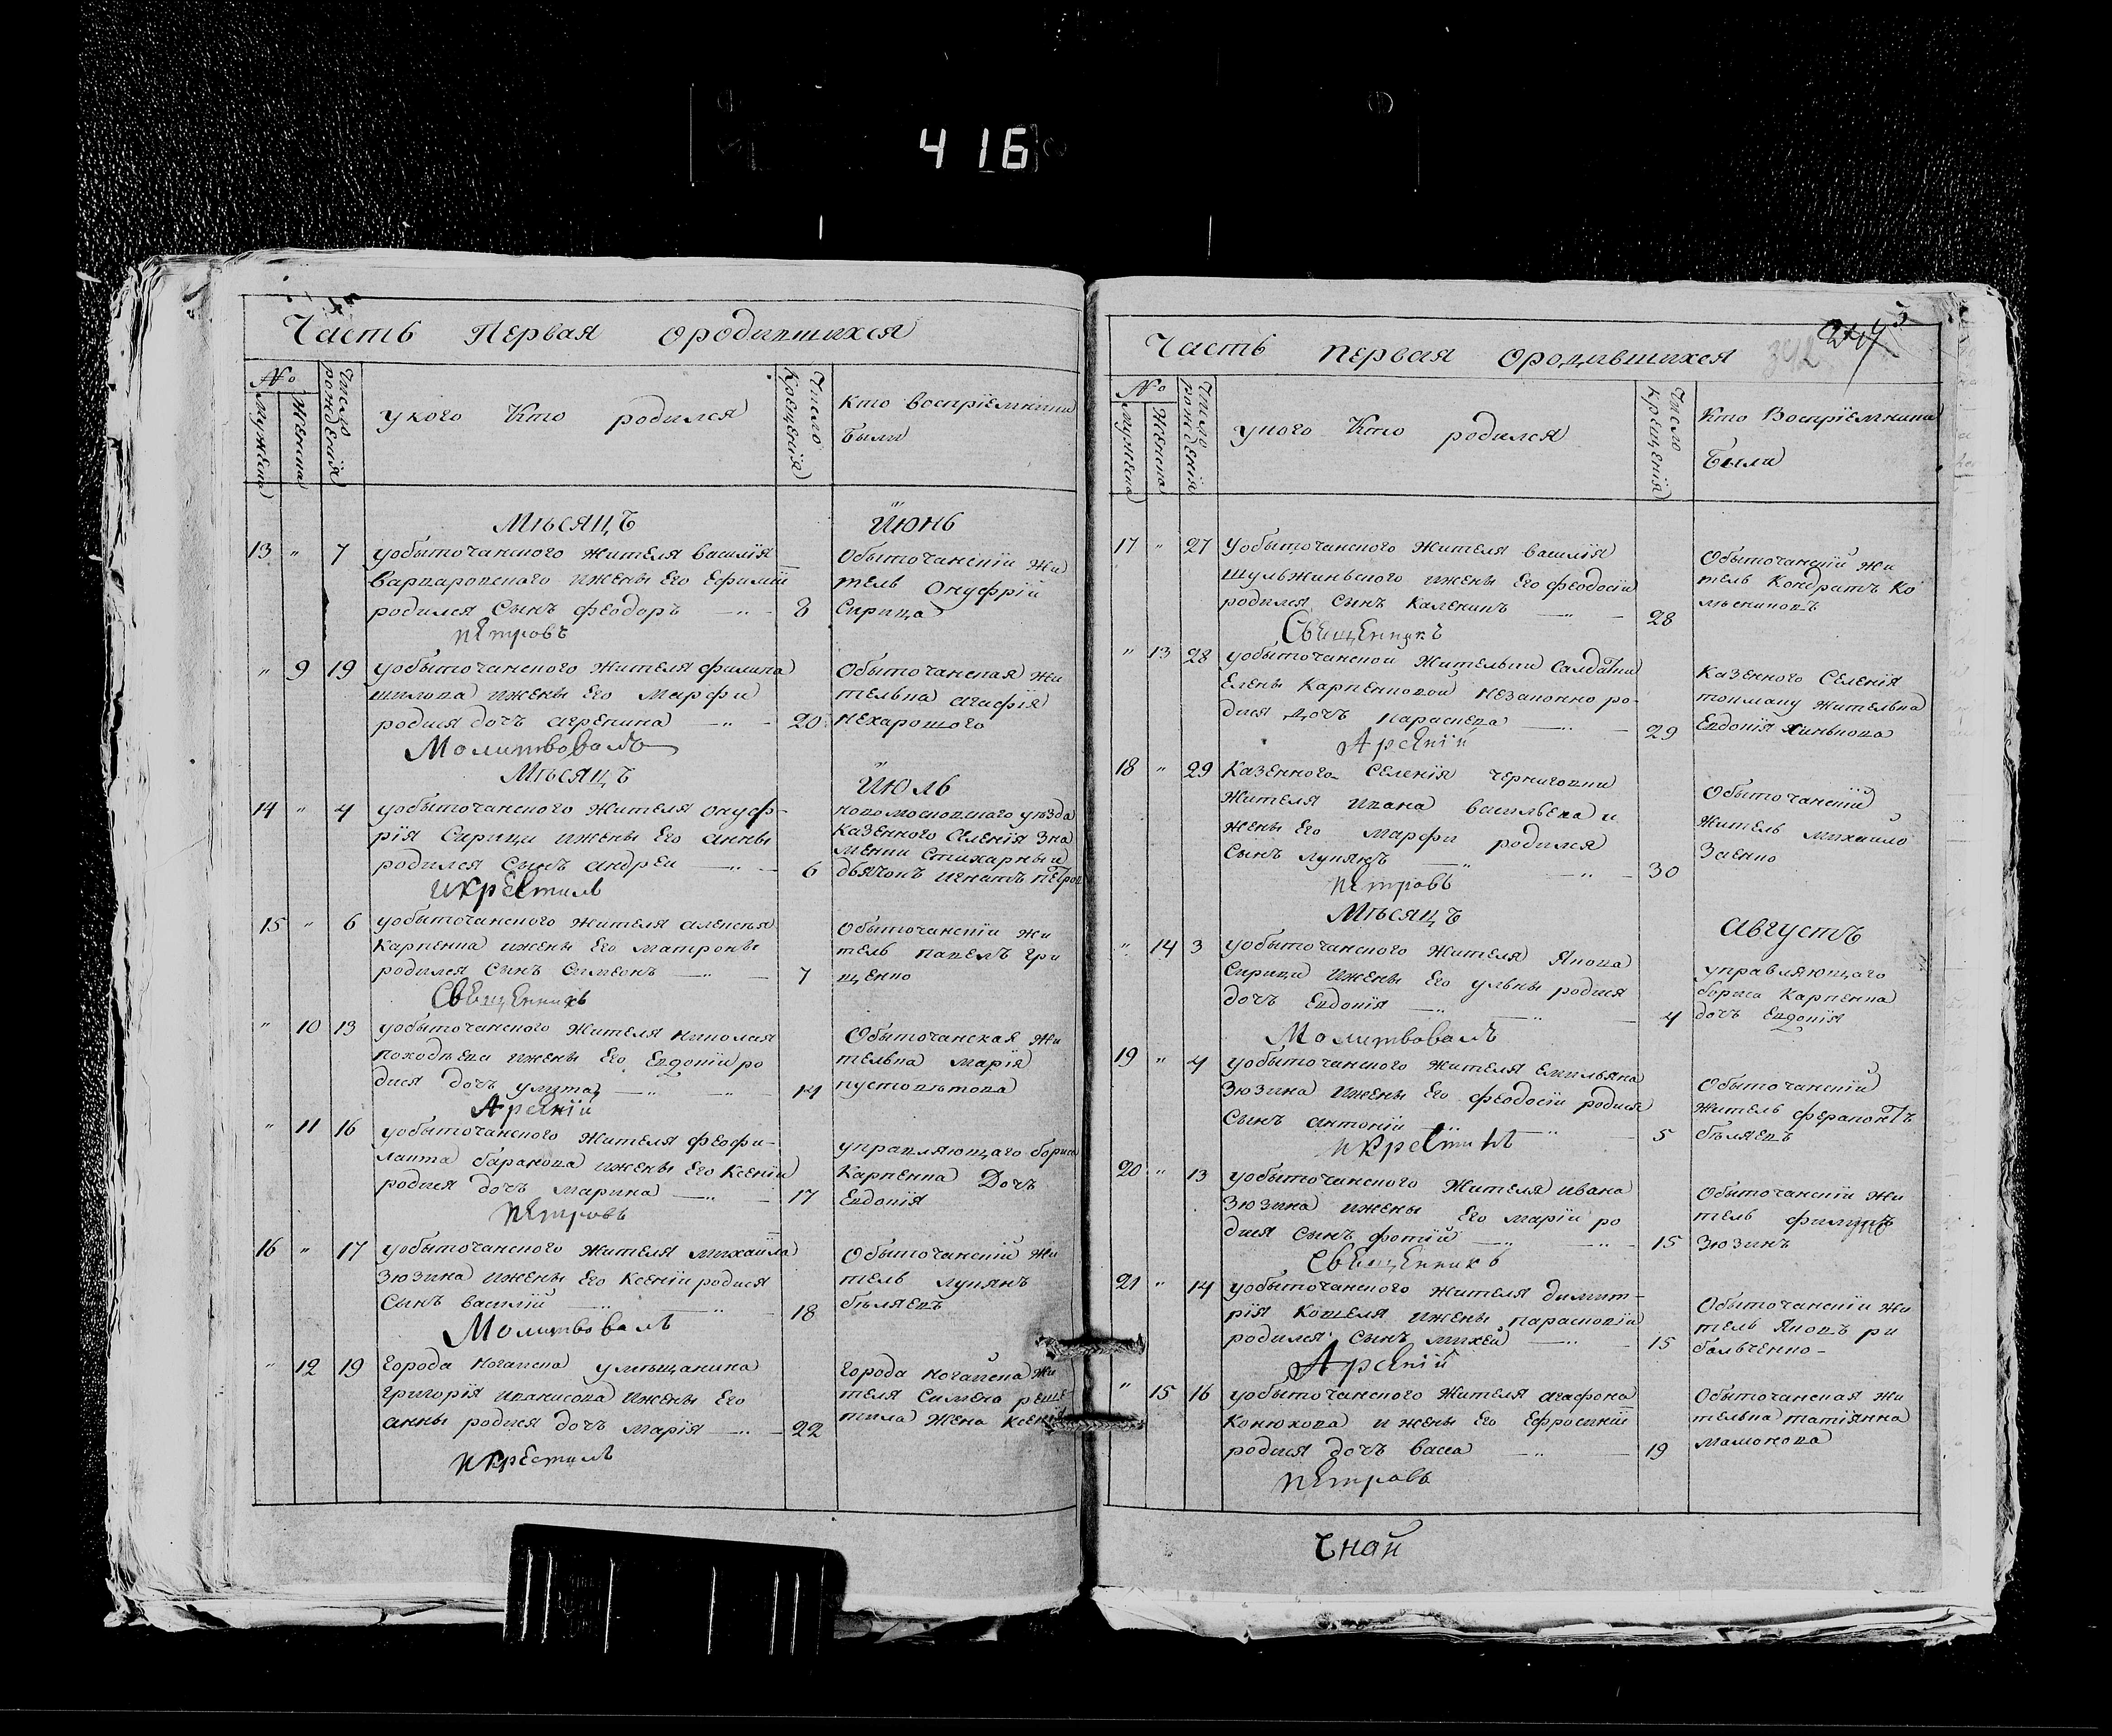 416
Часть Первая ородившихся
№
Мужеска
Женска
Число рождения
укого Кто родился
Число Крещенїя
Кто воспрїемники
были
Мѣсяцъ Июнь
13 " 7 уобыточанского жителя василїя
варваровского ижены Его Ефимїи
родился Сынъ феодоръ 8
Обыточанскїй жи
тель Онуфрїй
Сирица
пЕтровъ
" 9 19 уобыточанского жителя филипа
шилова ижены Его Марфы
родися дочъ агрепина 20
Обыточанская жи
телька агафїя
нехарошого
Молитвовалъ
Мѣсяцъ Июль
14 " 4 уобыточанского жителя онуф-
рїя Сирици ижены Его анны
родился Сынъ андреи 6
новомосковского уезда
Казенного Селенїя Зна
менки Стихарный
дьячокъ игнатъ петров
икрЕстилъ
15 " 6 уобыточанского жителя алексѣя
Карпенка ижены Его матроны
родился Сынъ Симеонъ 7
Обыточанскїи жи
тель павелъ гри
щенко
СвЕщЕнникъ
" 10 13 уобыточанского жителя николая
походѣева ижены Его Евдокїи ро
дися дочъ улита 14
Обыточанская жи
телька марїя
пустовѣтова
АрсЕнїй
" 11 16 уобыточанского жителя феофи-
лакта баракова ижены Его Ксенїи
родися дочъ марина 17
управляющаго бориса
Карпенка Дочъ
Евдокїя
пЕтровъ
16 " 17 уобыточанского жителя михаила
Зюзина ижены Его Ксенїи родися
Сынъ василїй 18
Обыточанскїй жи
тель лукянъ
бѣляевъ
Молитвовалъ
" 12 19 города ногайска умѣщанина
григорїя иванисова ижены Его
анны родися дочъ марїя 22
города ногайска жи
теля Симена
жена Ксенїя
икрЕстилъ
Часть первая ородившихся
№
Мужеска
Женска
Число рожденїя
укого Кто родился
Число крещенїя
Кто Воспрїемники
были
17 " 27 Уобыточанского жителя василїя
шульжинского ижены Его феодосїи
родился Сынъ Каленикъ 28
Обыточанскїй жи
тель Кондратъ Ко
СвЕщЕнникъ
" 13 28 уобыточанской жительки Салдатки
Елены Карпенковой незаконно ро-
дися дочъ параскева 29
Казенного Селенїя
токмаку жителька
Евдокїя
АрсЕнїй
18 " 29 Казенного Селенїя черниговки
жителя ивана васильева и
жены Его марфы родился
Сынъ лукянъ 30
Обыточанскїй
житель михайло
Заенко
пЕтровъ
Мѣсяцъ августъ
" 14 3 уобыточанского жителя Якова
Сирици ижены Его ульяны родися
дочъ Евдокїя 4
управляющаго
бориса Карпенка
дочъ Евдокїя
Молитвовалъ
19 " 4 уобыточанского жителя Емильяна
Зюзина ижены Его феодосїи родися
Сынъ антонїи 5
Обыточанскїй
житель ферапонтъ
бѣляевъ
икрЕстилъ
20 " 13 уобыточанского жителя ивана
Зюзина ижены Его марїи ро
дися Сынъ фотїй 15
Обыточанскїи жи
тель филипъ
Зюзинъ
СвЕщЕнникъ
21 " 14 уобыточанского жителя димит-
рїя Кошеля ижены парасковїи
родился Сынъ михей 15
Обыточанскїи жи
тель Яковъ ри
бальченко-
АрсЕнїй
" 15 16 уобыточанского жителя агафона
Конюхова и жены Его Ефросинїи
родися дочъ васса 19
Обыточанская жи
телька татїянна
мамонова
пЕтровъ